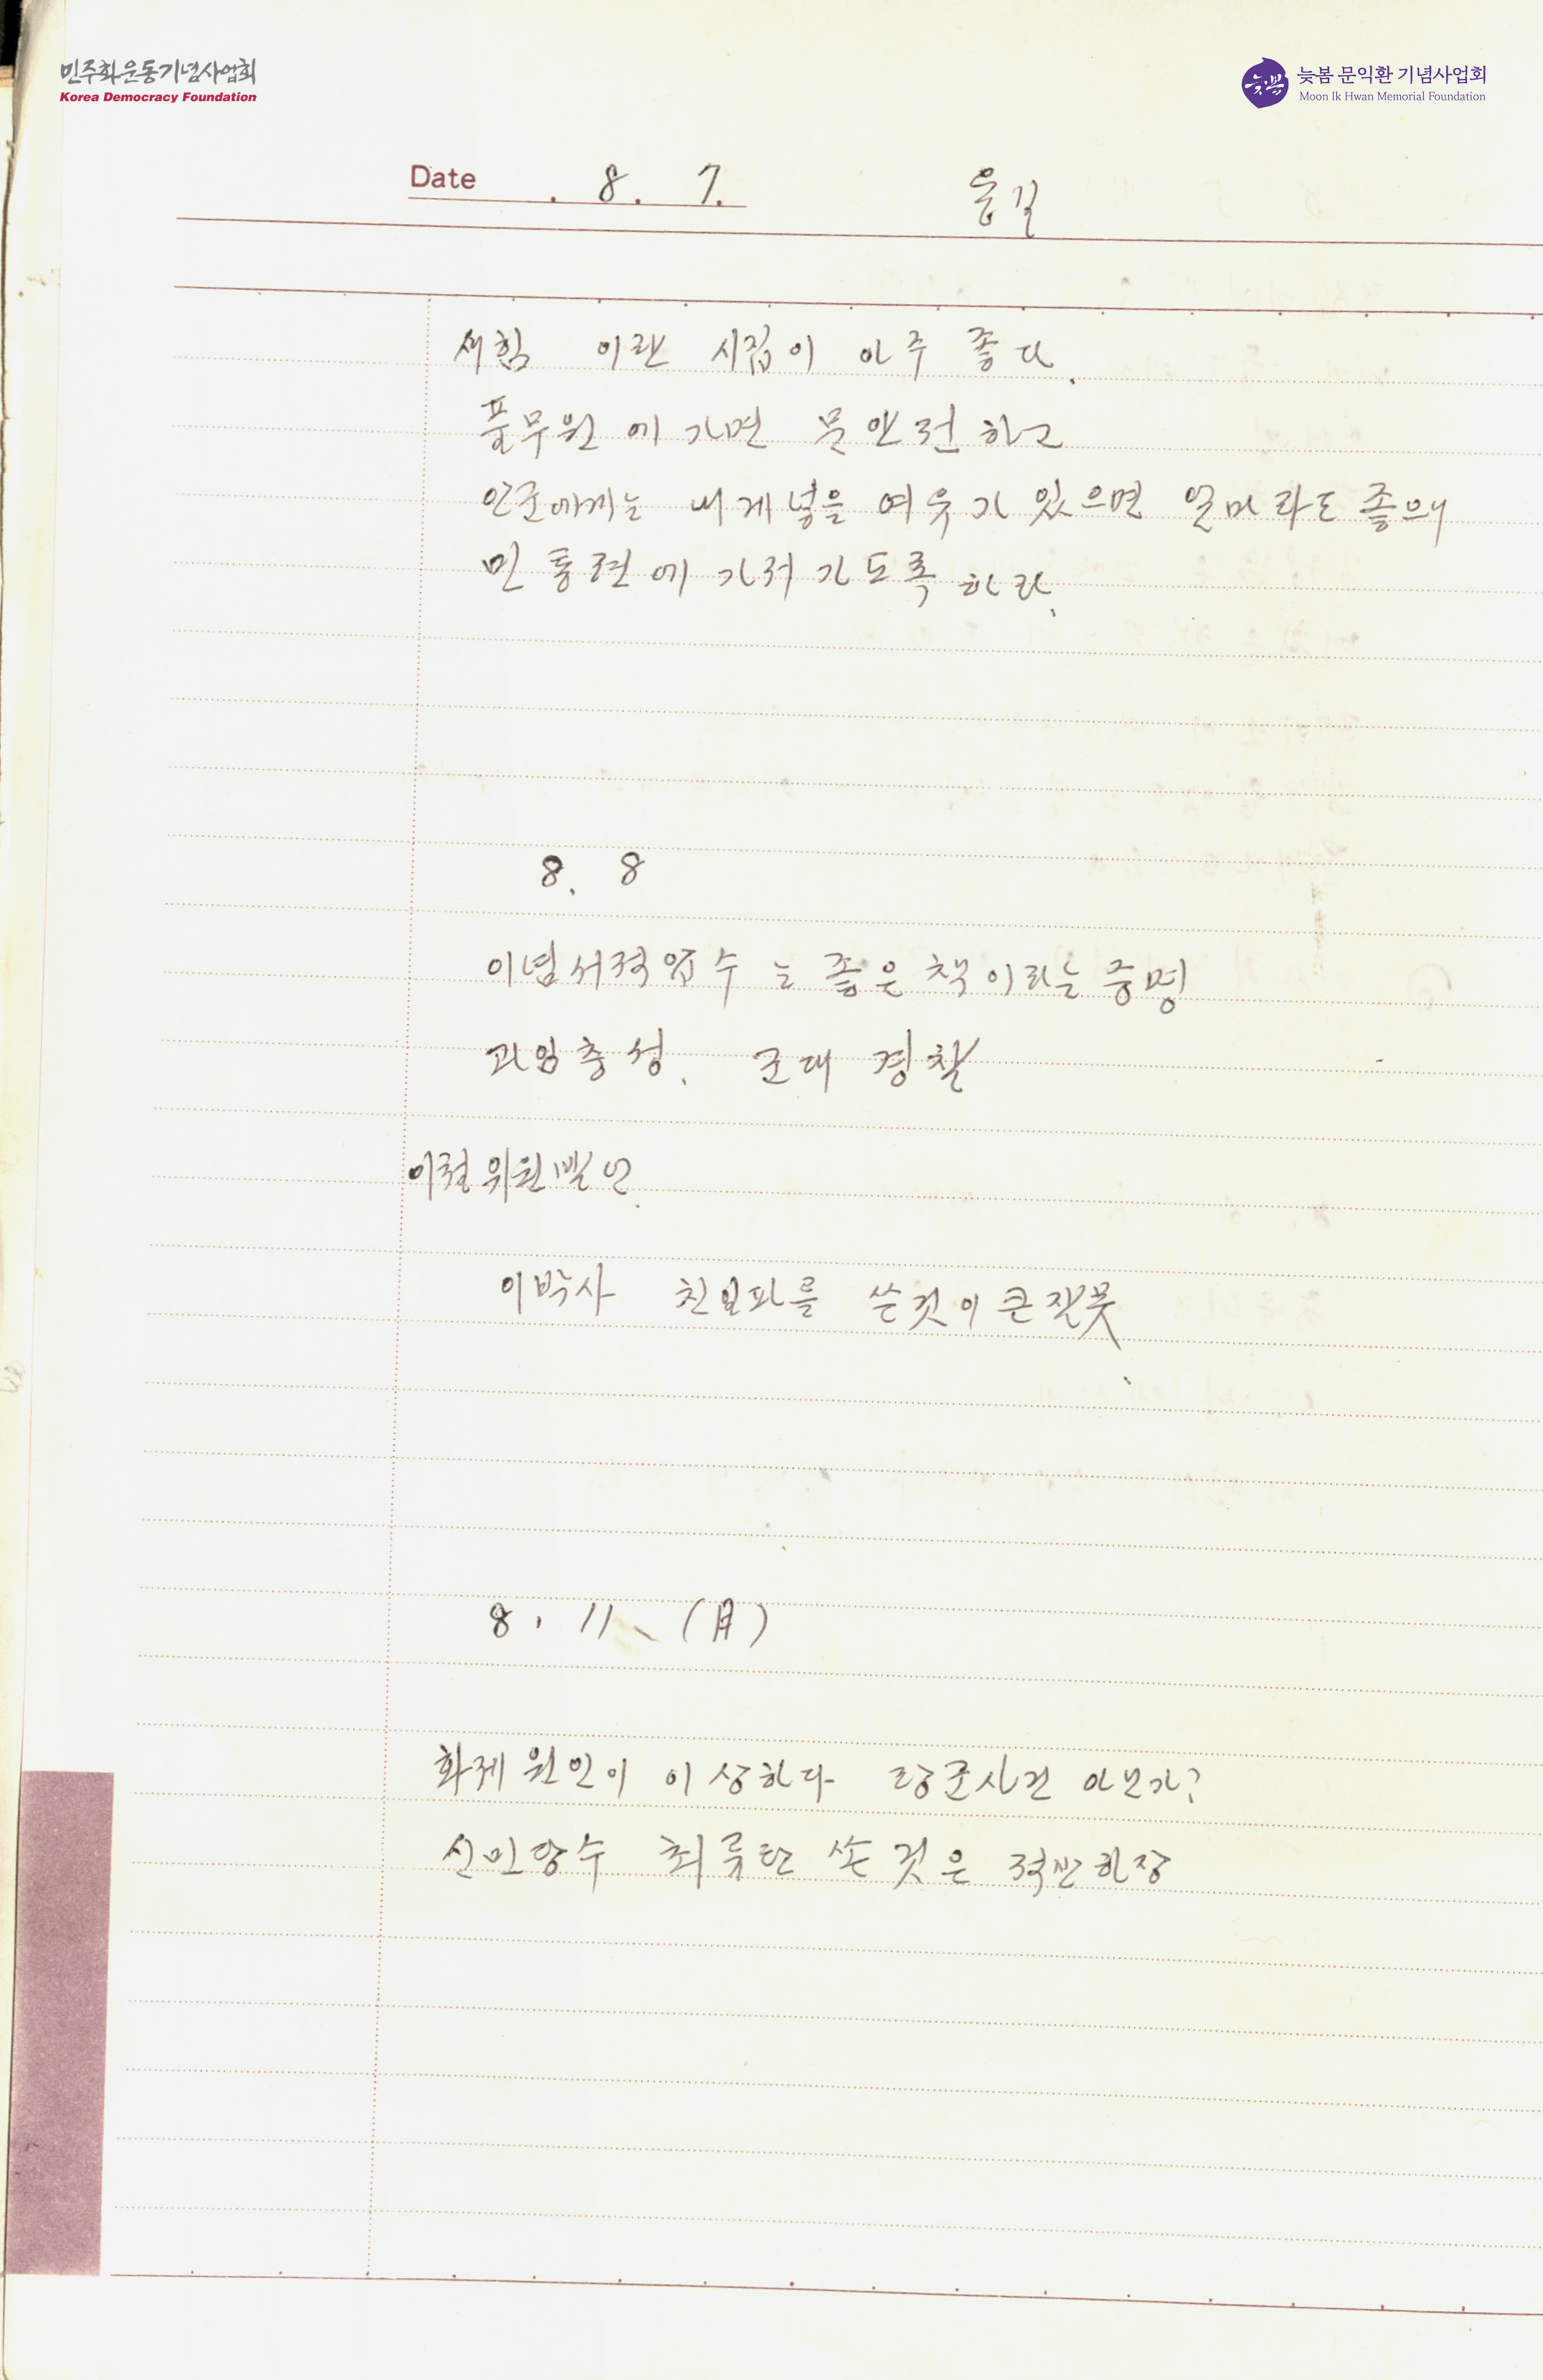 민주화운동기념사업회
Korea Democracy Foundation
늦봄
늦봄 문익환 기념사업회
Moon Ik Hwan Memorial Foundation
Date . 8. 7.
새힘 이란 시집이 아주 좋다.
풀무원에 가면 문안전하고
인군에게는 내게 넣을 여유가 있으면 얼마라도 좋으니
민통련에 가저가도록 하라.
8. 8
이념서적압수는 좋은 책이라는 증명
과잉충성. 군대 경찰
이철위원발언.
이박사 친일파를 쓴것이 큰 잘못.
8. 11. (月)
화제원인이 이상하다 아닌가?
신민당수 최류탄 쏜 것은 적반하장